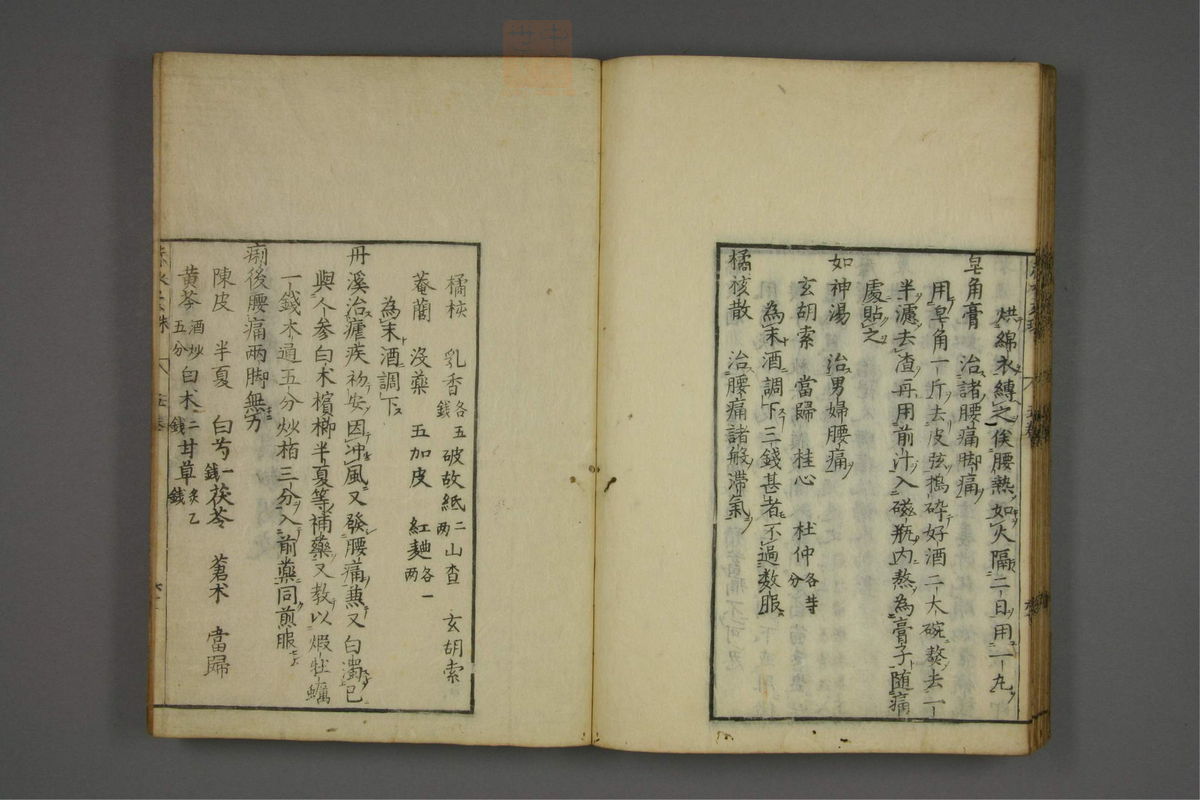 烘綿衣縛之俟腰熱如火隔二日用一丸
皂角膏　治諸腰痛脚痛
用皂角一斤去皮弦搗碎好酒二大碗熬去一
半濾去渣再用前汁入磁瓶内熬為膏子随痛
處貼之
如神湯　治男婦腰痛
玄胡索　當歸　桂心　杜仲各等分
為末酒調下三錢甚者不過数服
橘核散　治腰痛諸般滞氣
橘核　乳香各五錢　破故紙二両　山査　玄胡索
菴䕡　没藥　五加皮　紅麯各一両
為末酒調下
丹溪治瘧疾初安因冲風又發腰痛兼又白濁已
與人参白朮檳榔半夏等補藥又教以煆牡蠣
一錢木通五分炒栢三分入前藥同煎服
痢後腰痛両脚無力
陳皮　半夏　白芍一錢　茯苓　蒼朮　當歸
黄芩酒炒五分　白朮二錢　甘草炙乙錢